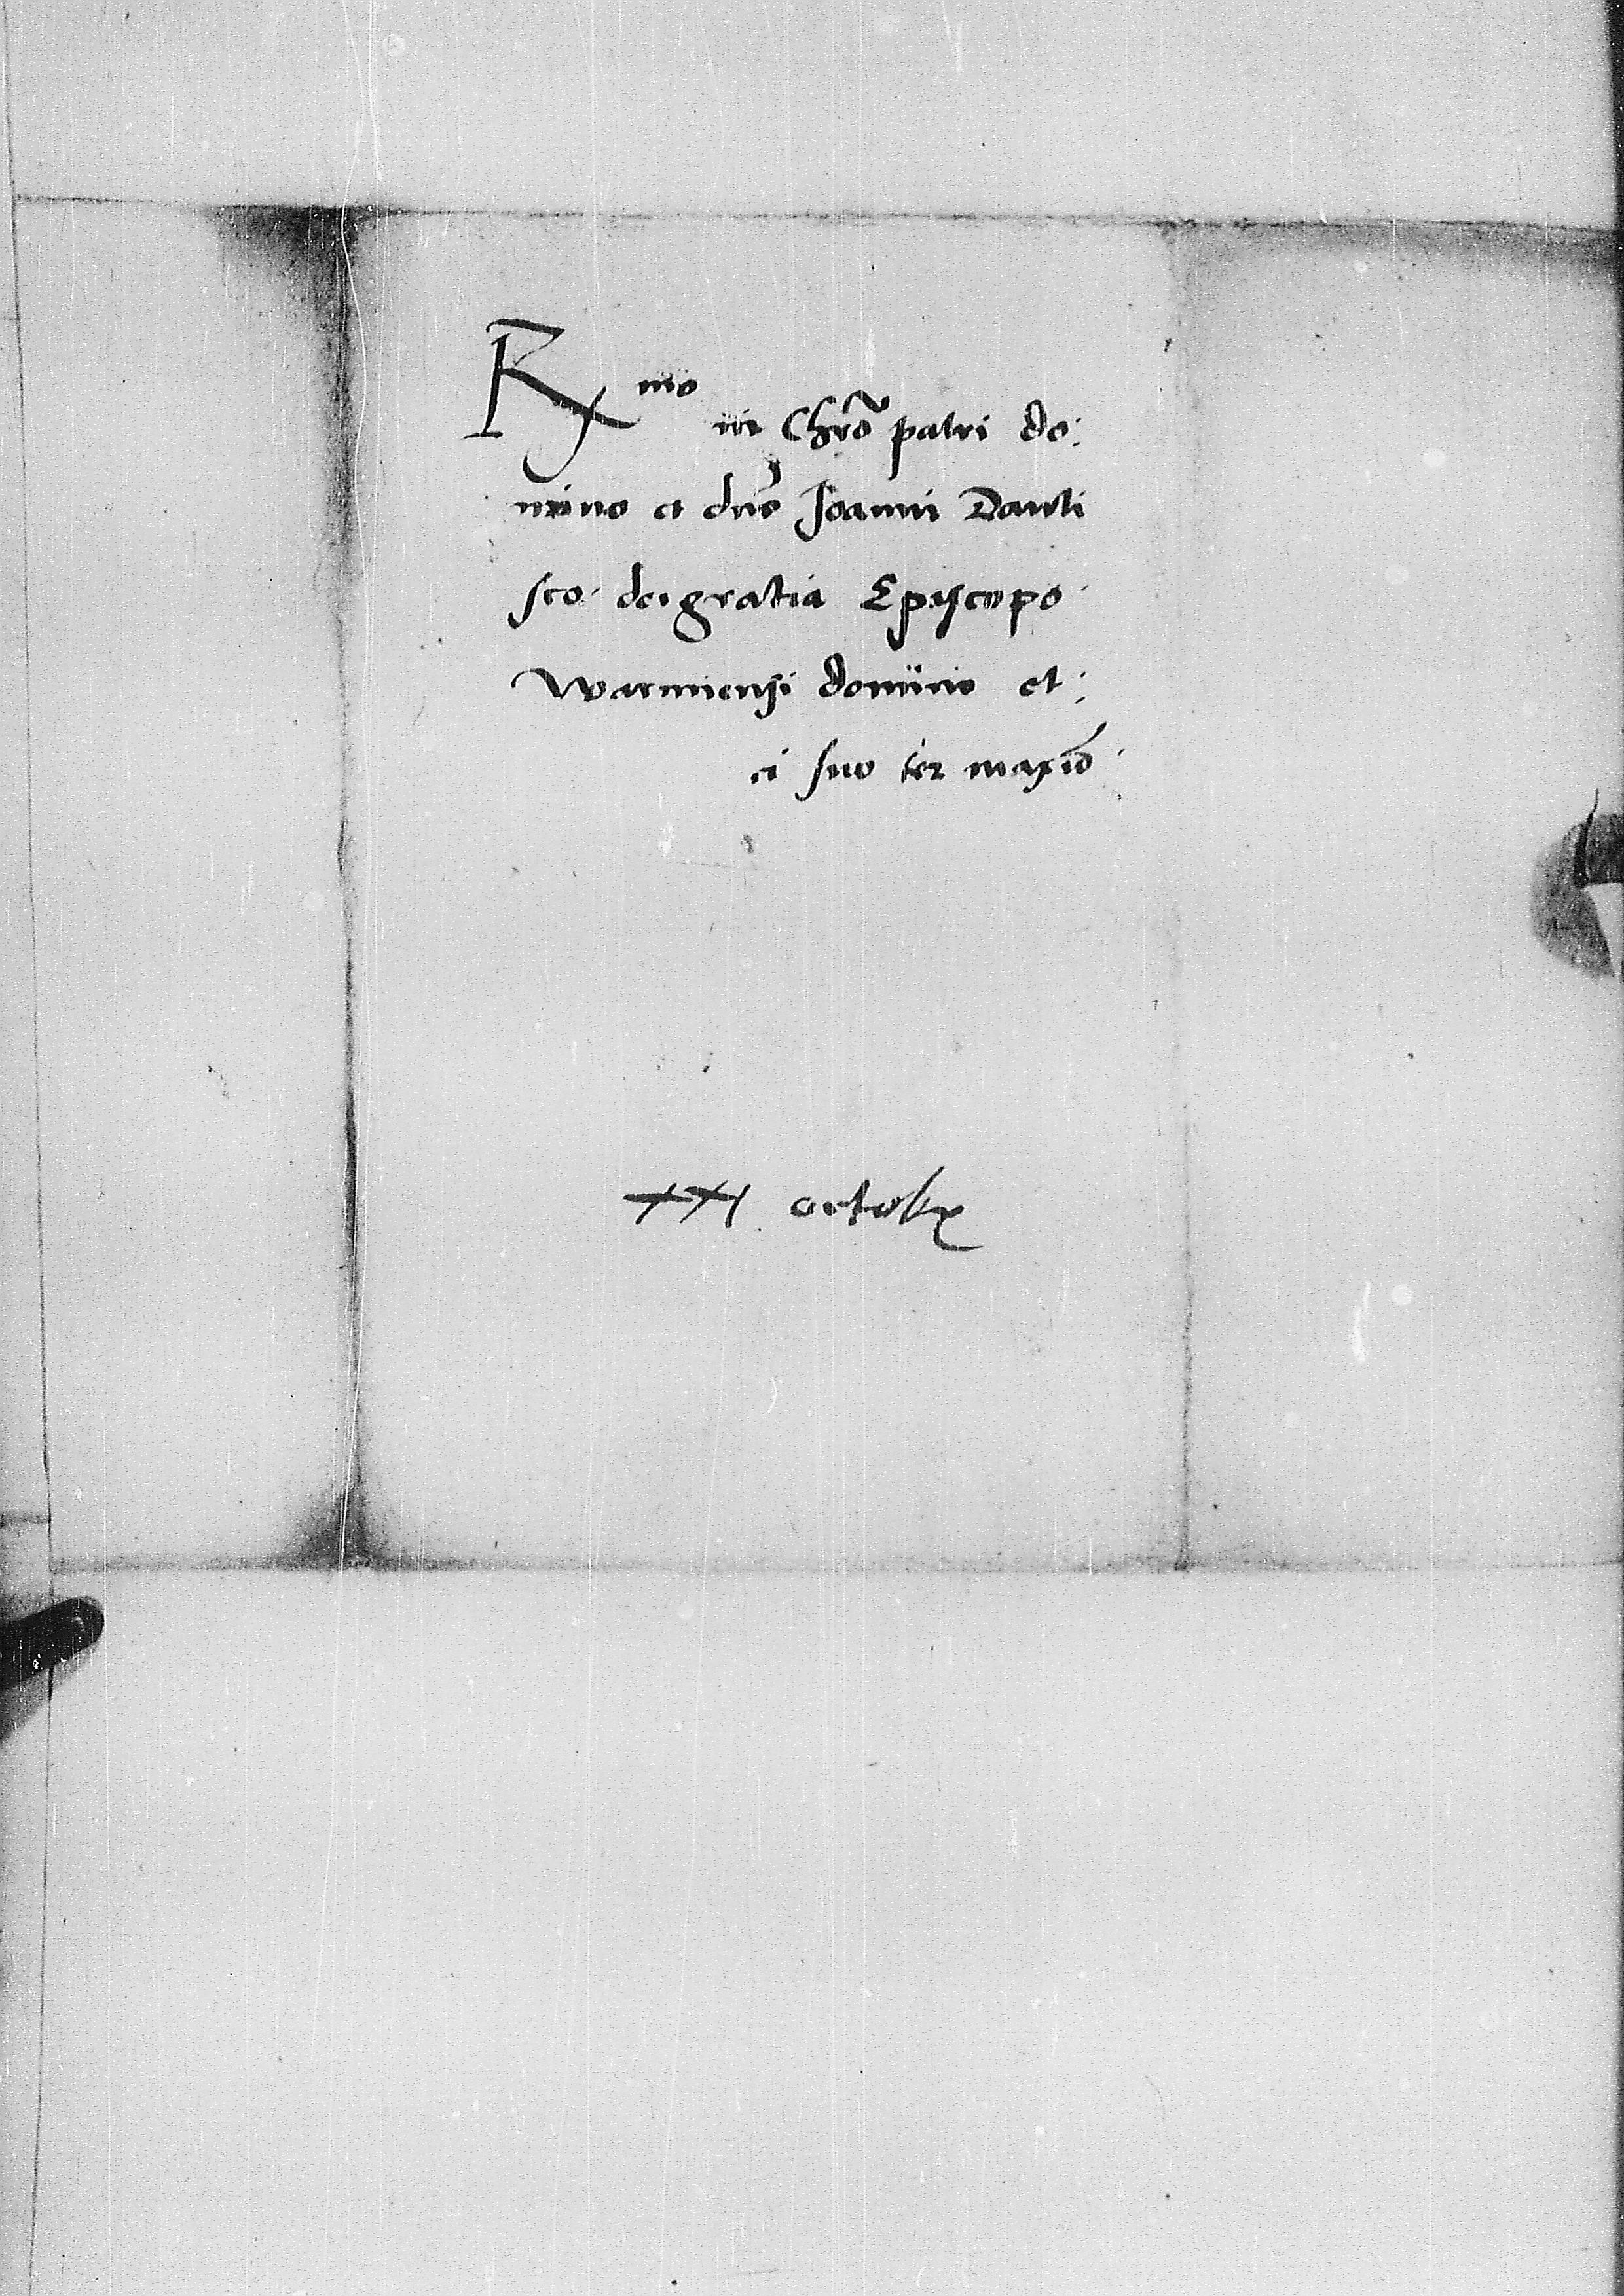 R mo in Chrō patri do:
mino et dnō Joanni Danti
sco dei gratia Episcopo
Warmiensi domino et:
ci suo ter maxiō
xxi octobr